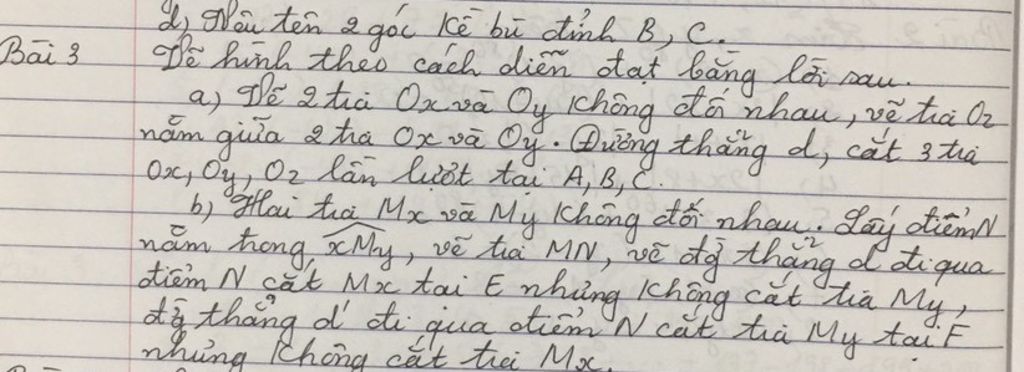 d) Nêu tên 2 góc kề bù đỉnh B, C.
Bài 3 Vẽ hình theo cách diễn đạt bằng lời sau.
a) Vẽ 2 tia Ox và Oy không đối nhau, vẽ tia Oz
nằm giữa 2 tia Ox và Oy. Đường thẳng d, cắt 3 tia
Ox, Oy, Oz lần lượt tại A, B, C.
b) Hai tia Mx và My không đối nhau. Lấy điểm N
nằm trong xMy, vẽ tia MN, vẽ đg thẳng d đi qua
điểm N cắt Mx tại E nhưng không cắt tia My,
đg thẳng d' đi qua điểm N cắt tia My tại F
nhưng không cắt tia Mx.